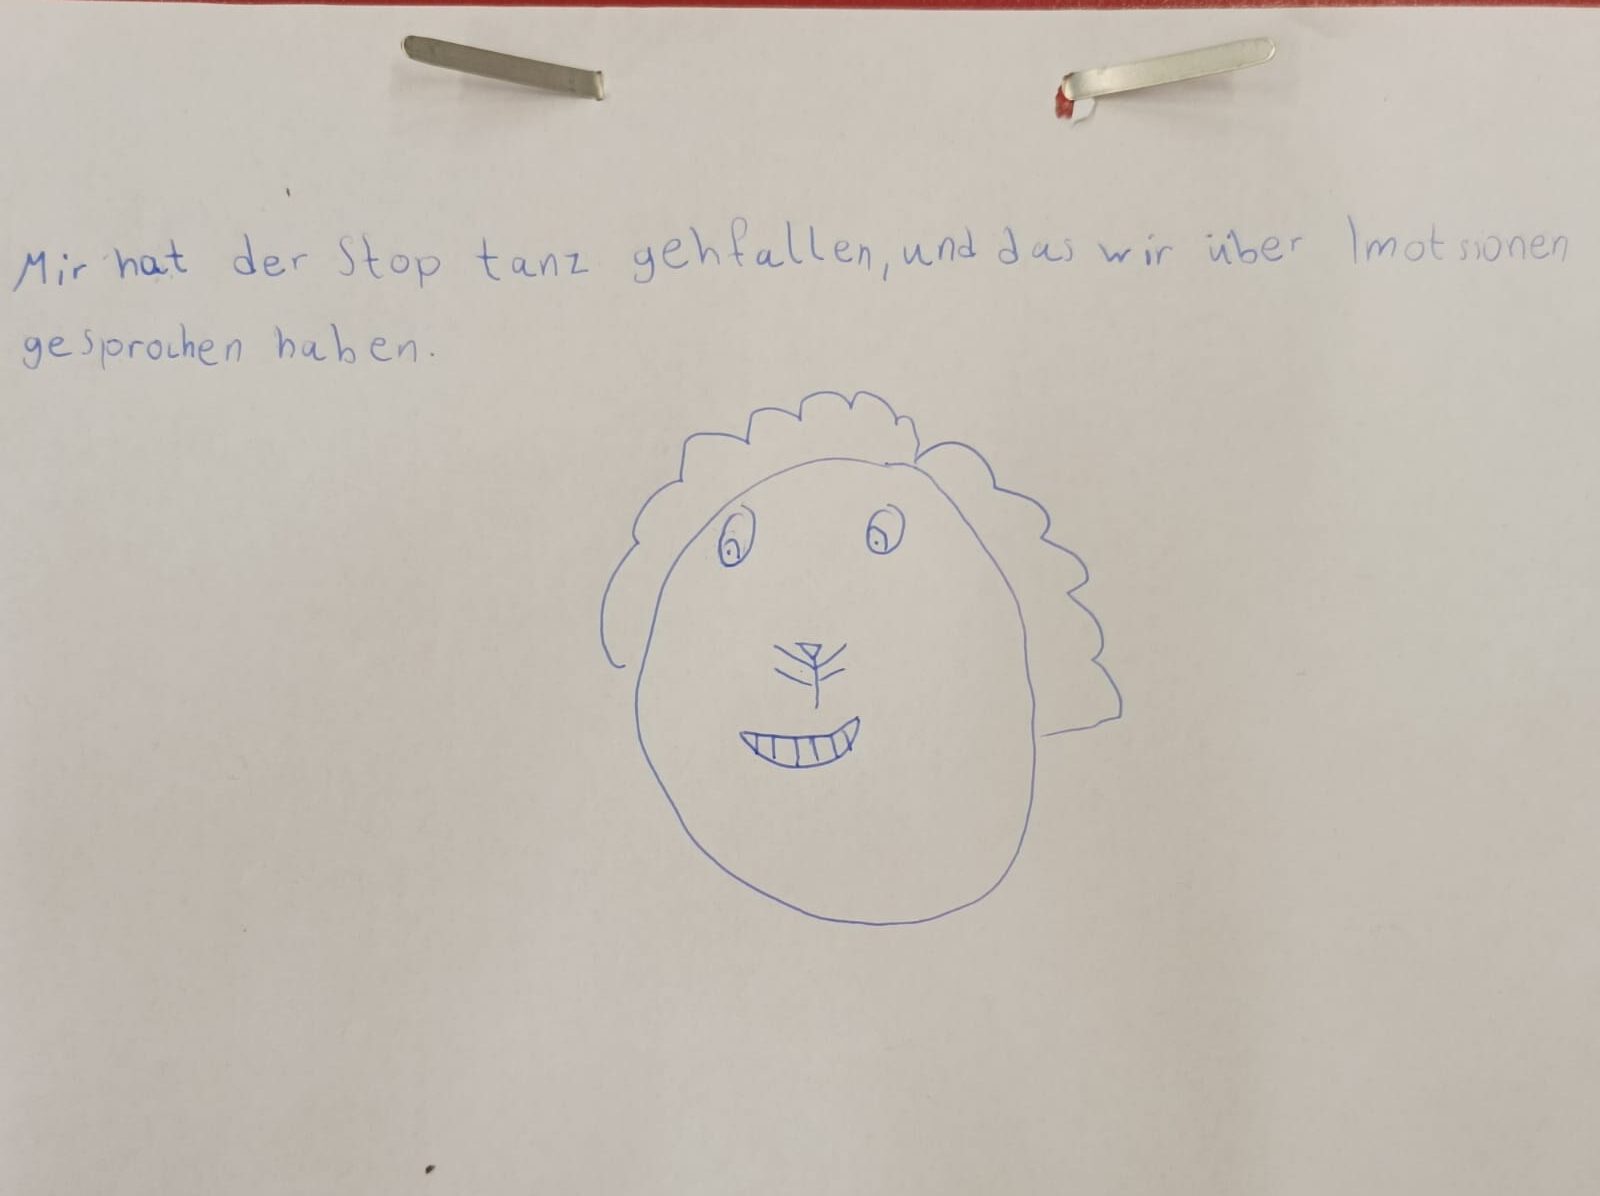 Mir hat der Stop tanz gehfallen, und das wir über Imotsionen
gesprochen haben.